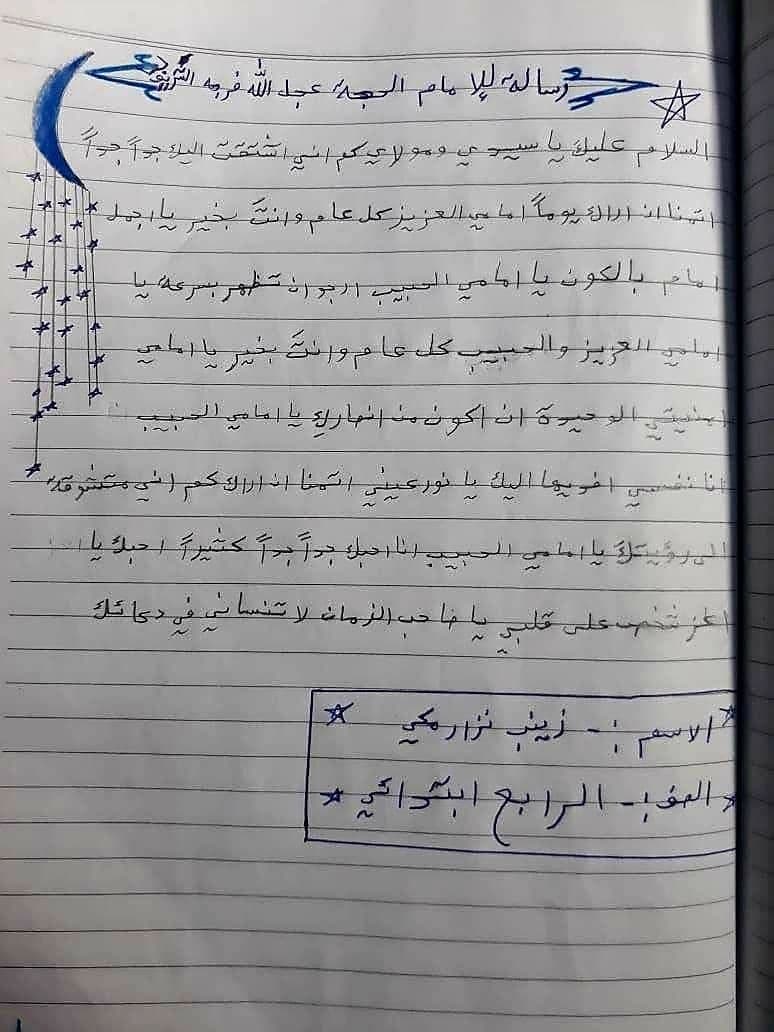 رسالة للإمام الحجة عجل الله فرجه الشريف
السلام عليك يا سيدي ومولاي كم اني اشتقت اليك جداً جداً
اتمنا ان اراك يوماً امامي العزيز كل عام وانتَ بخير يا اجمل
امام بالكون يا امامي الحبيب ارجو ان تظهر بسرعة يا
امامي العزيز والحبيب كل عام وانتَ بخير يا امامي
امنيتي الوحيدة ان اكون من انصارك يا امامي الحبيب
انا نفسي افديها اليك يا نور عيني اتمنا ان اراك كم اني متشوقة
الى رؤيتكَ يا امامي الحبيب انا احبك جداً جداً كثيراً احبك يا
اعز شخص على قلبي يا صاحب الزمان لا تنساني في دعائك
الاسم :- زينب نزار مكي
الصف :- الرابع ابتدائي